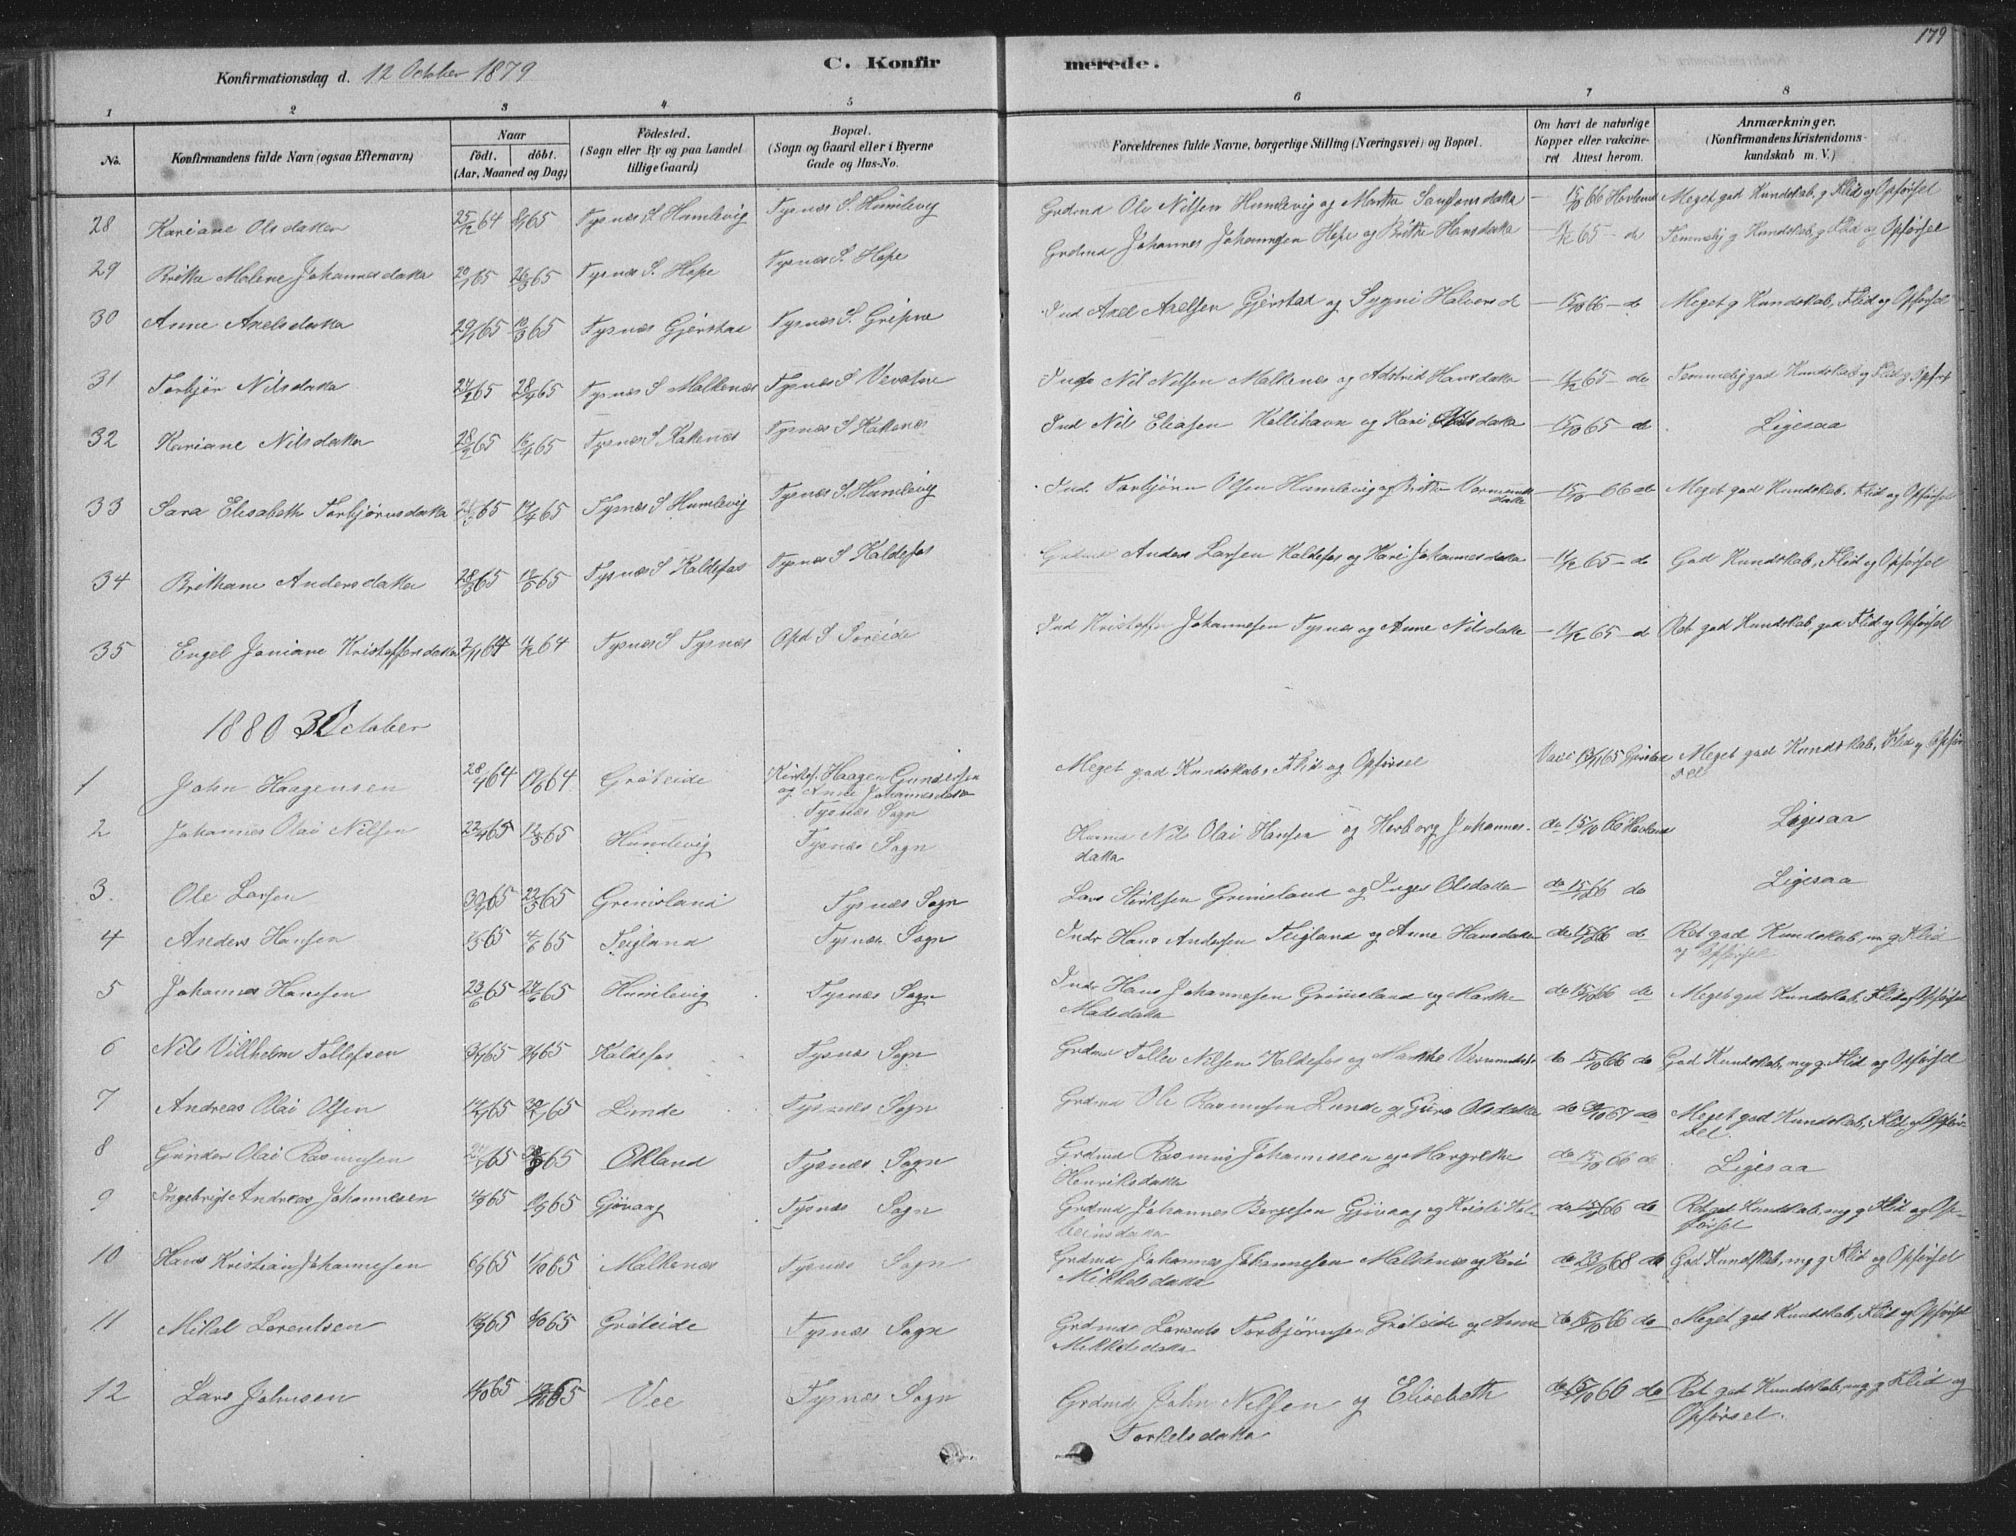 179
Konfirmationsdag d. 12 October 1879
C. Konfirmerede.
1 2 3 4 5 6 7 8
No.
Konfirmandens fulde Navn (ogsaa Efternavn)
Naar
födt. döbt.
(Aar, Maaned og Dag)
Födested.
(Sogn eller By og paa Landet
tillige Gaard)
Bopæl.
(Sogn og Gaard eller i Byerne
Gade og Hus-No.
Forældrenes fulde Navne, borgerlige Stilling (Næringsvei) og Bopæl.
Om havt de naturlige
Kopper eller vakcine-
ret Attest herom.
Anmærkninger.
(Konfirmandens Kristendoms-
kundskab m. V.)
28 Kariane Olsdatter 25/12 64 8/1 65 Tysnæs S. Humlevig Tysnæs S. Humlevig Grdmd Ole Nilsen Humlevig og Martha datter 15/10 66 Meget god Kundskab, g Flid og Opførsel
29 Britha Malene Johannesdatter 65 26/3 65 Tysnæs S. Hope Tysnæs S. Hope Grdmd Johannes Johannesen Hope og Britha Hansdatter 65 do Temmelig g Kundskab, g Flid og Opførsel
30 Anne Axelsdatter 29/1 65 65 Tysnæs Gjerstad Tysnæs S. Gripne Ind Axel Axelsen Gjerstad og Sygni Halvorsd 15/10 66 do Meget g Kundskab, Flid og Opførsel
31 Torbjør Nilsdatter 65 28/4 65 Tysnæs S Malkenæs Tysnæs S Vevatne Nil Nilsen Malkenes og Adstrid Hansdatter 11/12 65 do Temmelig god Kundskab g Flid g Opførs
32 Kariane Nilsdatter 28/2 65 65 Tysnæs S Kakenæs Tysnæs S Kakenæs Ind Nils Eliasen Kallihavn og Kari datter 15/10 65 do Ligesaa
33 Sara Elisabeth Torbjørnsdatter 65 17/4 65 Tysnæs S Humlevig Tysnæs S. Humlevig Ind. Torbjørn Olsen Humlevig og Britha
datter 15/10 66 do Meget god Kundskab, Flid og Opførsel
34 Brithane Andersdatter 28/3 65 65 Tysnæs S Kaldefos Tysnæs S Kaldefos Grdmd Anders Larsen Kaldefos og Kari Johannesdatter 11/12 65 do God Kundskab, Flid og Opførsel
35 Engel Janiane Kristoffersdatter 64 64 Tysnæs S Tysnæs Opd S Søreide Ind Kristoffer Johannesen Tysnæs og Anne Nilsdatter 11/12 65 d Ret god Kundskab, god Flid og Opførsel
1880 3 October
1 John Haagensen 28/4 64 19/6 64 Grøteide Kirkes. Haagen Gundersen
og Anne Johannesdatter
Tysnæs Sogn Meget god Kundskab, Flid og Opførsel Vacc 13/11 65 Gjerstad Meget god Kundskab, Flid og Opfør-
sel
2 Johannes Olai Nilsen 22/4 65 12/5 65 Humlevig Tysnæs Sogn Nils Olai Hansen og Herborg Johannes-
datter do 15/10 66 Ligesaa
3. Ole Larsen 65 22/5 65 Grimsland Tysnæs Sogn Lars Størksen Grimsland og Inger Olsdatter do 15/10 66 do Ligesaa
4 Anders Hansen 65 4/6 65 Teigland Tysnæs Sogn Indr Hans Andersen Teigland og Anne Hansdatter do 15/10 66 do Ret god Kundskab, m g Flid
og Opførsel
5 Johannes Hansen 23/6 65 65 Humlevig Tysnæs Sogn Indr Hans Johannesen Grimsland og Marthe
Madsdatter do 15/10 66 do Meget god Kundskab, Flid og Opførsel
6 Nils Villhelm Tollefsen 65 65 Kaldefos Tysnæs Sogn Grdmd Tollev Nilsen Kaldefos og Marthe do 15/10 66 do God Kundskab, mg g Flid og Opførsel
7 Andreas Olai Olsen 65 30/7 65 Lunde Tysnæs Sogn Grdmd Ole Rasmussen Lunde og Guro Olsdatter do 67 do Meget god Kundskab, Flid og Opfør-
sel.
8 Gunder Olai Rasmussen 65 65 Økland Tysnæs Sogn Grdmd Rasmus Johannessen og Margrethe
Henriksdatter do 15/10 66 do Ligesaa
9 Ingebrigt Andreas Johannesen 65 65 Gjøvaag Tysnæs Sogn Grdmd Johannes Børgesen Gjøvaag og Kristi Kol-
beinsdatter do 15/10 66 do Ret god Kundskab, mg g Flid og Op-
førsel
10 Hans Kristian Johannesen 65 65 Malkenæs Tysnæs Sogn Grdmd Johannes Johannesen Malkenæs og Kari
Mikkelsdatter do 68 do God Kundskab, mg g Flid og Opførsel
11 Mikal Lorentsen 65 65 Grøteide Tysnæs Sogn Grdmd Lorents Torbjørnsen Grøteide og Anne
Mikkelsdatter do 15/10 66 do Meget god Kundskab, Flid og Opførsel
12 Lars Johnsen 65 65 Vee Tysnæs Sogn Grdmd John Nilsen og Elisebeth
Torkelsdatter do 15/10 66 do Ret god Kundskab, mg g Flid og
Opførsel.